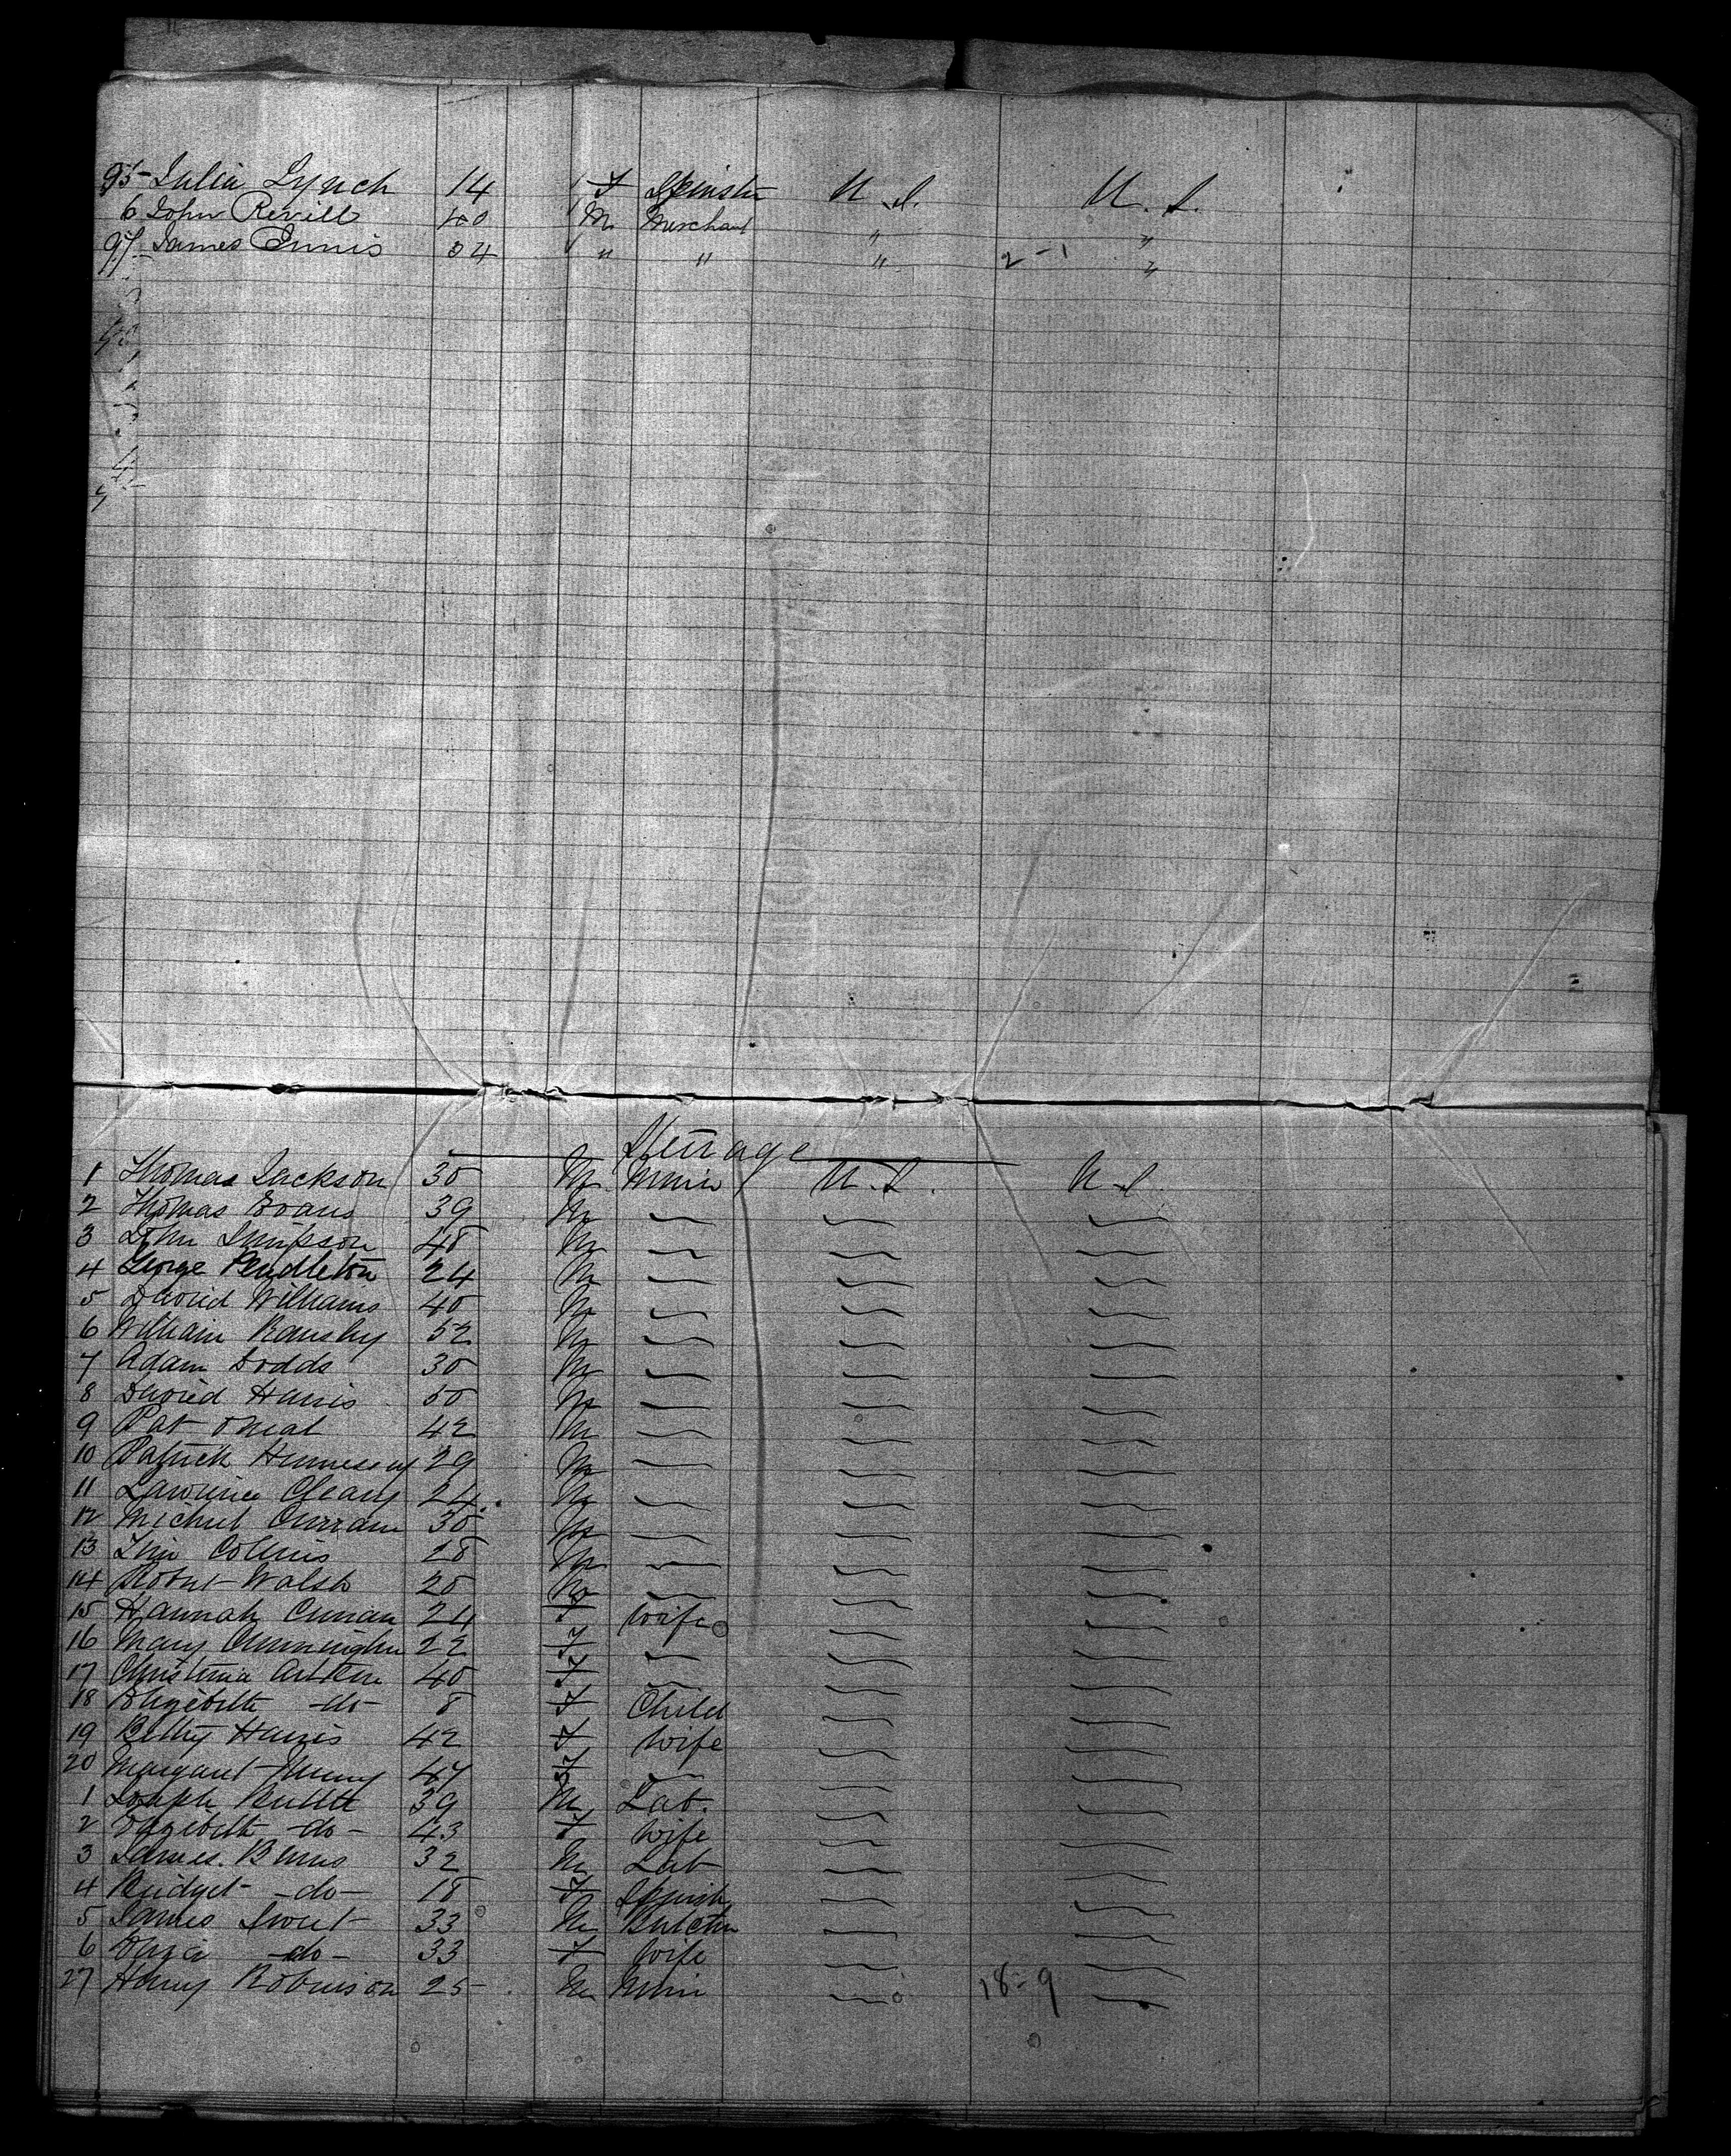 95 Julia Lynch 14 F Spinster U.S. U.S.
6 John Revill 40 M Merchant " "
97 James Innis 34 " " " 2-1 "
Steerage
1 Thomas Jackson 30 M Miner U.S. U.S.
2 Thomas Evans 39 M
3 John Simpson 48 M
4 George Pendleton 24 M
5 David Williams 40 M
6 William 52 M
7 Adam Dodds 30 M
8 David Harris 50 M
9 Pat Oneal 42 M
10 Patrick Hennessey 29 M
11 Lawrence Cleary 24 M
12 Michael Curran 30 M
13 Tim Collins 28 M
14 Robert Walsh 20 M
15 Hannah Curran 24 F Wife
16 Mary Cunningham 22 F
17 Christina Aitken 40 F
18 Elizebeth -do- 8 F Child
19 Betty Harris 42 F Wife
20 Margaret 47 F
1 Joseph 39 M Lab.
2 Elizebeth -do- 43 F Wife
3 James Burns 32 M Lab
4 Bridget -do- 18 F Spinst
5 James Sweet 33 M Butcher
6 -do- 33 F Wife
27 Henry Robinson 25 M Miner 18-9